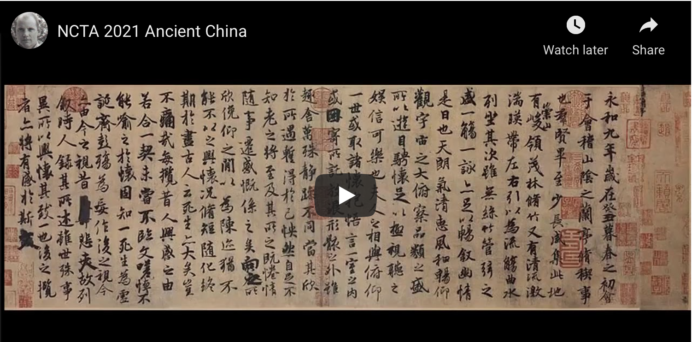 NCTA 2021 Ancient China
Watch later
Share
永和九年歲在癸丑暮春之初會
于會稽山陰之蘭亭脩稧事
也羣賢畢至少長咸集此地
有崇山峻領茂林脩竹又有清流激
湍暎帶左右引以為流觴曲水
列坐其次雖無絲竹管弦之
盛一觴一詠亦足以暢敘幽情
是日也天朗氣清惠風和暢仰
觀宇宙之大俯察品類之盛
所以遊目騁懷足以極視聽之
娛信可樂也人之相與俯仰
一世或取諸悟言一室之內
或因寄所形骸之外雖
趣舍萬殊靜躁不同當其欣
於所遇蹔得於己怏然自足不
知老之將至及其所之既惓情
隨事遷感慨係之矣向之所
欣俛仰之閒以為陳迹猶不
能不以之興懷況脩短隨化終
期於盡古人云死生亦大矣豈
不痛哉每攬昔人興感之由
若合一契未嘗不臨文嗟悼不
能喻之於懷固知一死生為虛
誕齊彭殤為妄作後之視今
亦由今之視昔悲夫故列
敘時人錄其所述雖世殊事
異所以興懷其致一也後之攬
者亦將有感於斯文